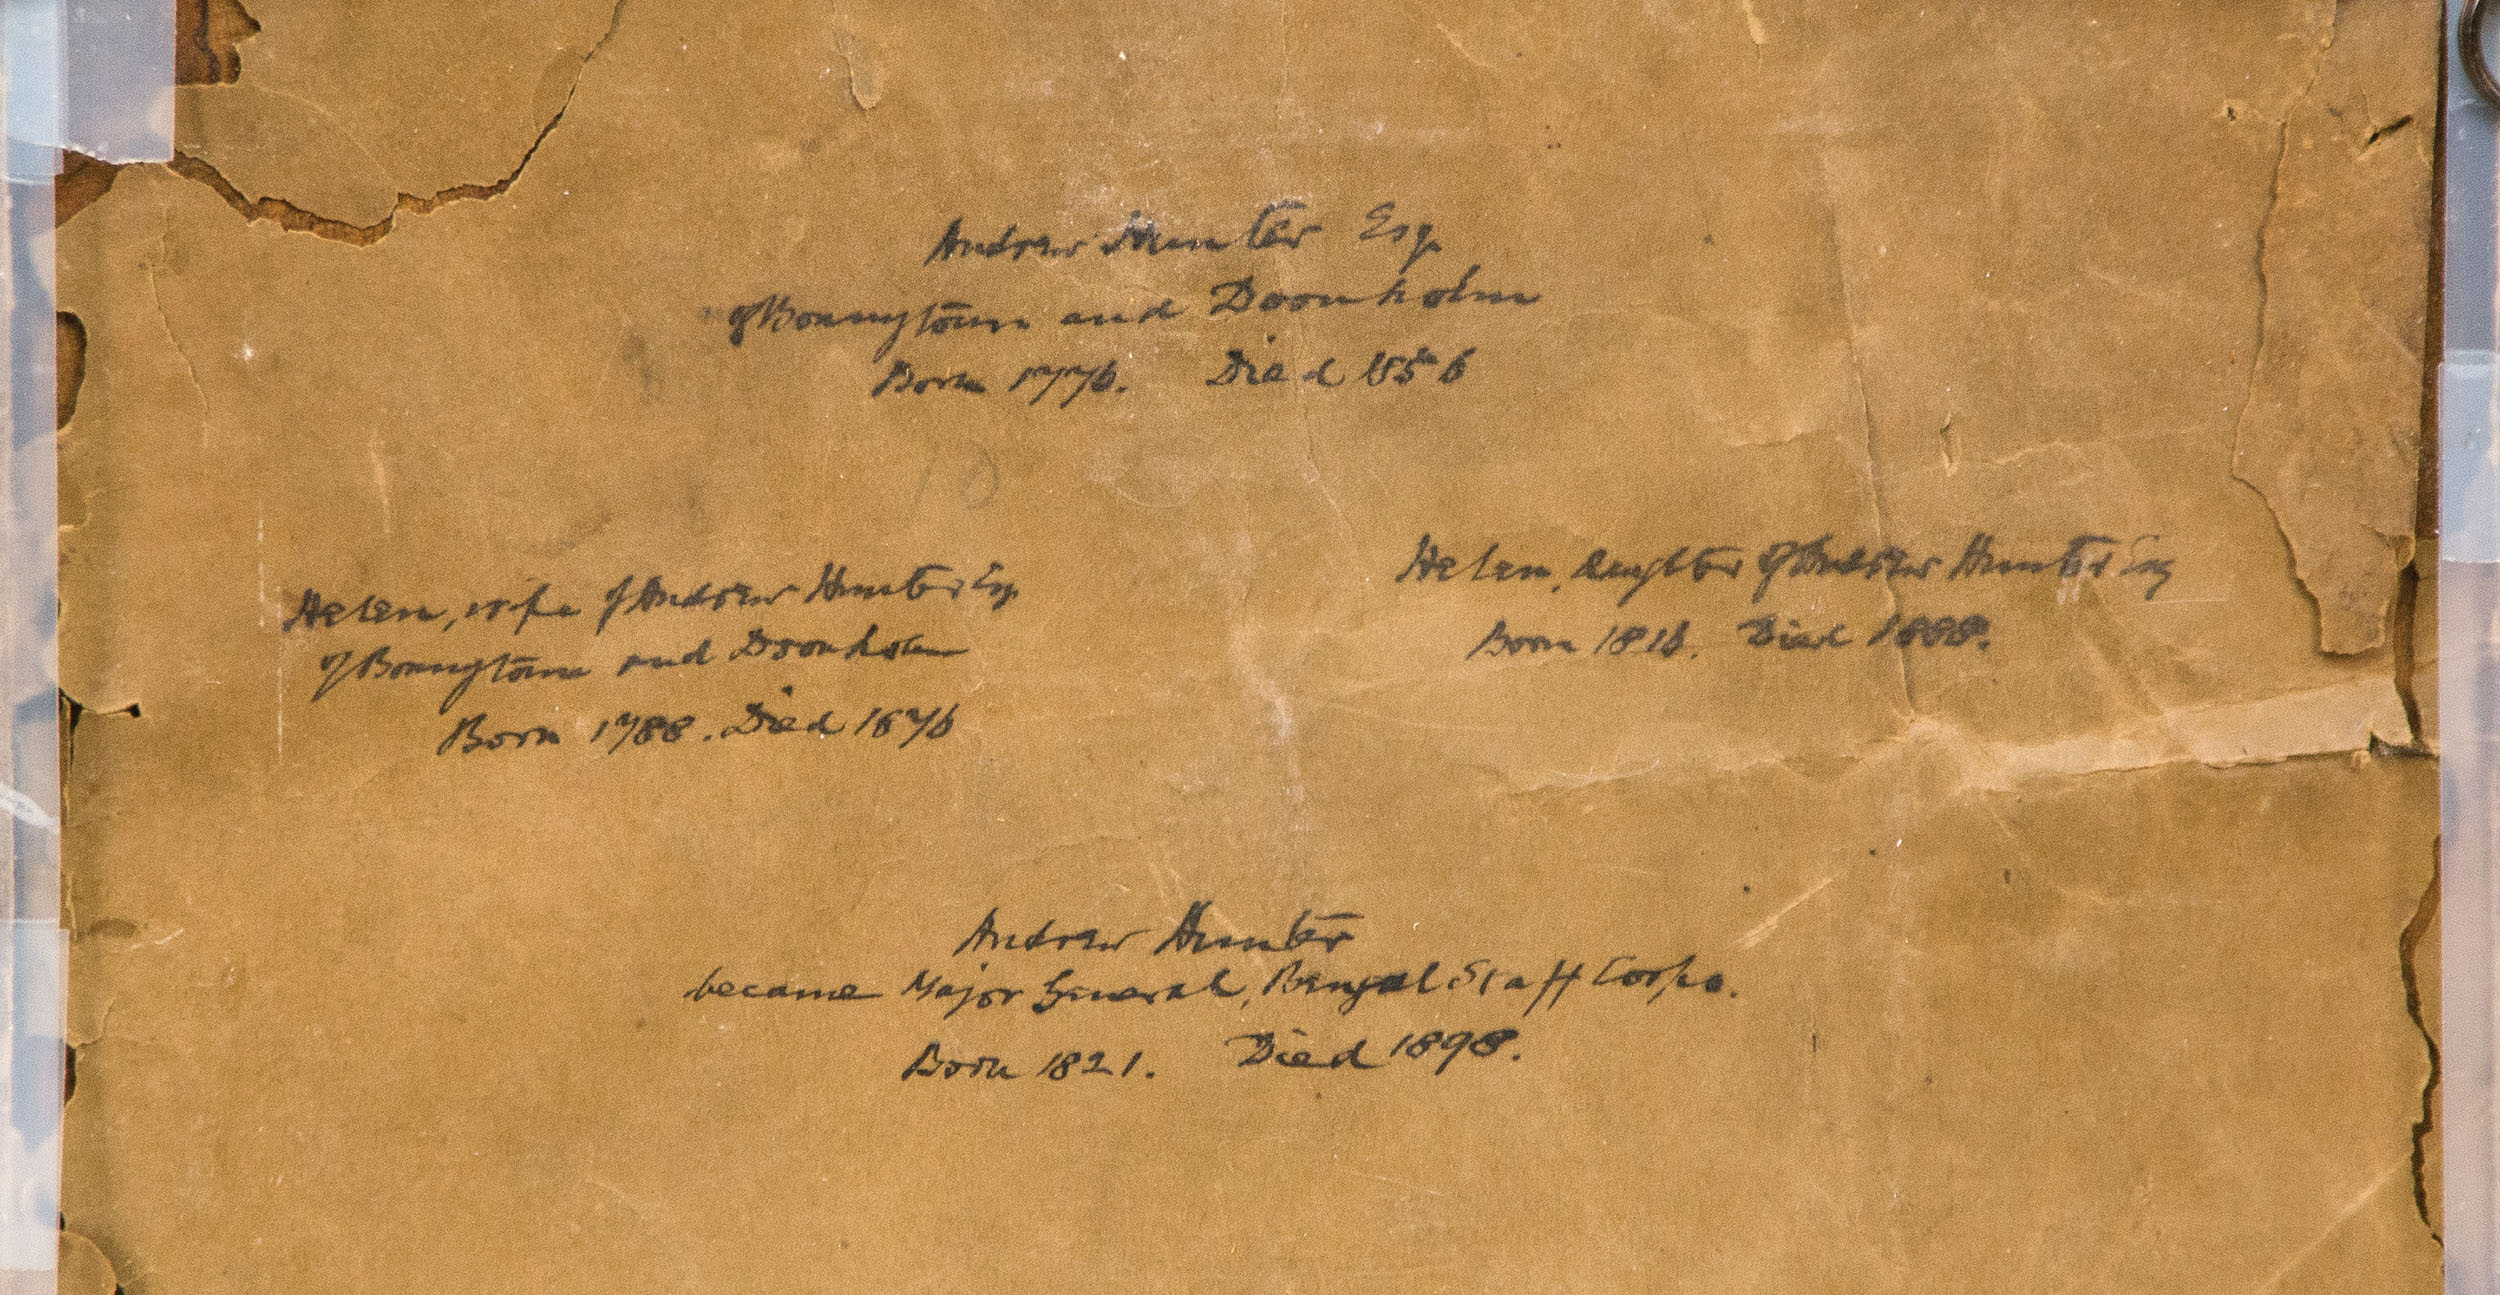 Andrew Hunter Esq.
of Bonnytown and Doonholm
Born 1776. Died 1856
10
Helen, wife of Andrew Hunter Esq.
of Bonnytown and Doonholm
Born 1788. Died 1876
Helen, daughter of Andrew Hunter Esq
Born 1816. Died 1888.
Andrew Hunter
became Major General, Bengal Staff Corps.
Born 1821. Died 1898.